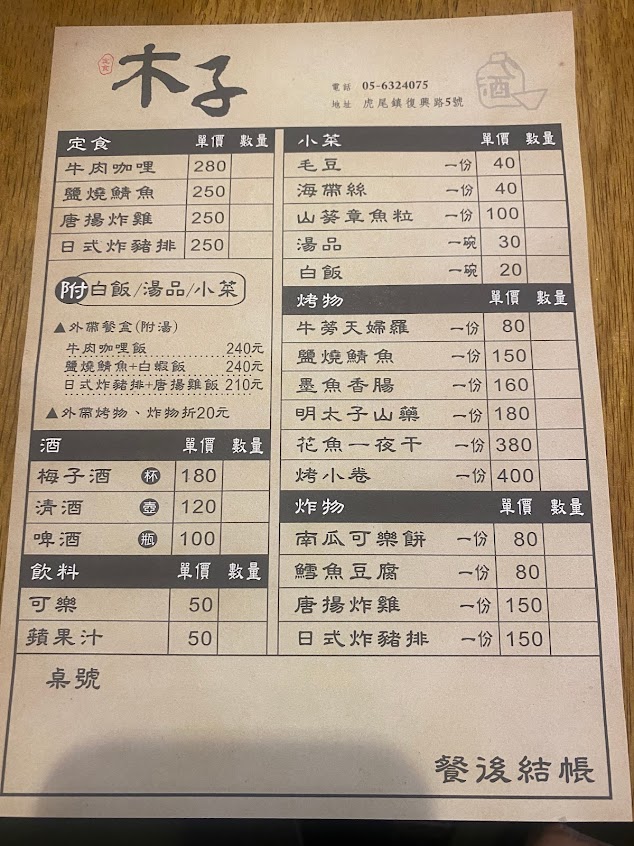 定食
木子
電話 05-6324075
地址 虎尾鎮復興路5號
酒
定食 單價 數量
牛肉咖哩 280
鹽燒鯖魚 250
唐揚炸雞 250
日式炸豬排 250
附 白飯/湯品/小菜
▲外帶餐盒(附湯)
牛肉咖哩飯 240元
鹽燒鯖魚+白蝦飯 240元
日式炸豬排+唐揚雞飯 210元
▲外帶烤物、炸物折20元
酒 單價 數量
梅子酒 杯 180
清酒 壺 120
啤酒 瓶 100
飲料 單價 數量
可樂 50
蘋果汁 50
小菜 單價 數量
毛豆 一份 40
海帶絲 一份 40
山葵章魚粒 一份 100
湯品 一碗 30
白飯 一碗 20
烤物 單價 數量
牛蒡天婦羅 一份 80
鹽燒鯖魚 一份 150
墨魚香腸 一份 160
明太子山藥 一份 180
花魚一夜干 一份 380
烤小卷 一份 400
炸物 單價 數量
南瓜可樂餅 一份 80
鱈魚豆腐 一份 80
唐揚炸雞 一份 150
日式炸豬排 一份 150
桌號
餐後結帳